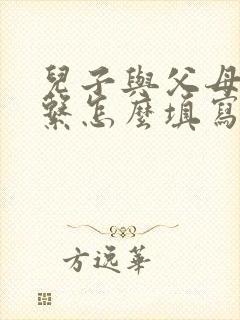 兒子與父母
繫怎麼填寫
方逸華